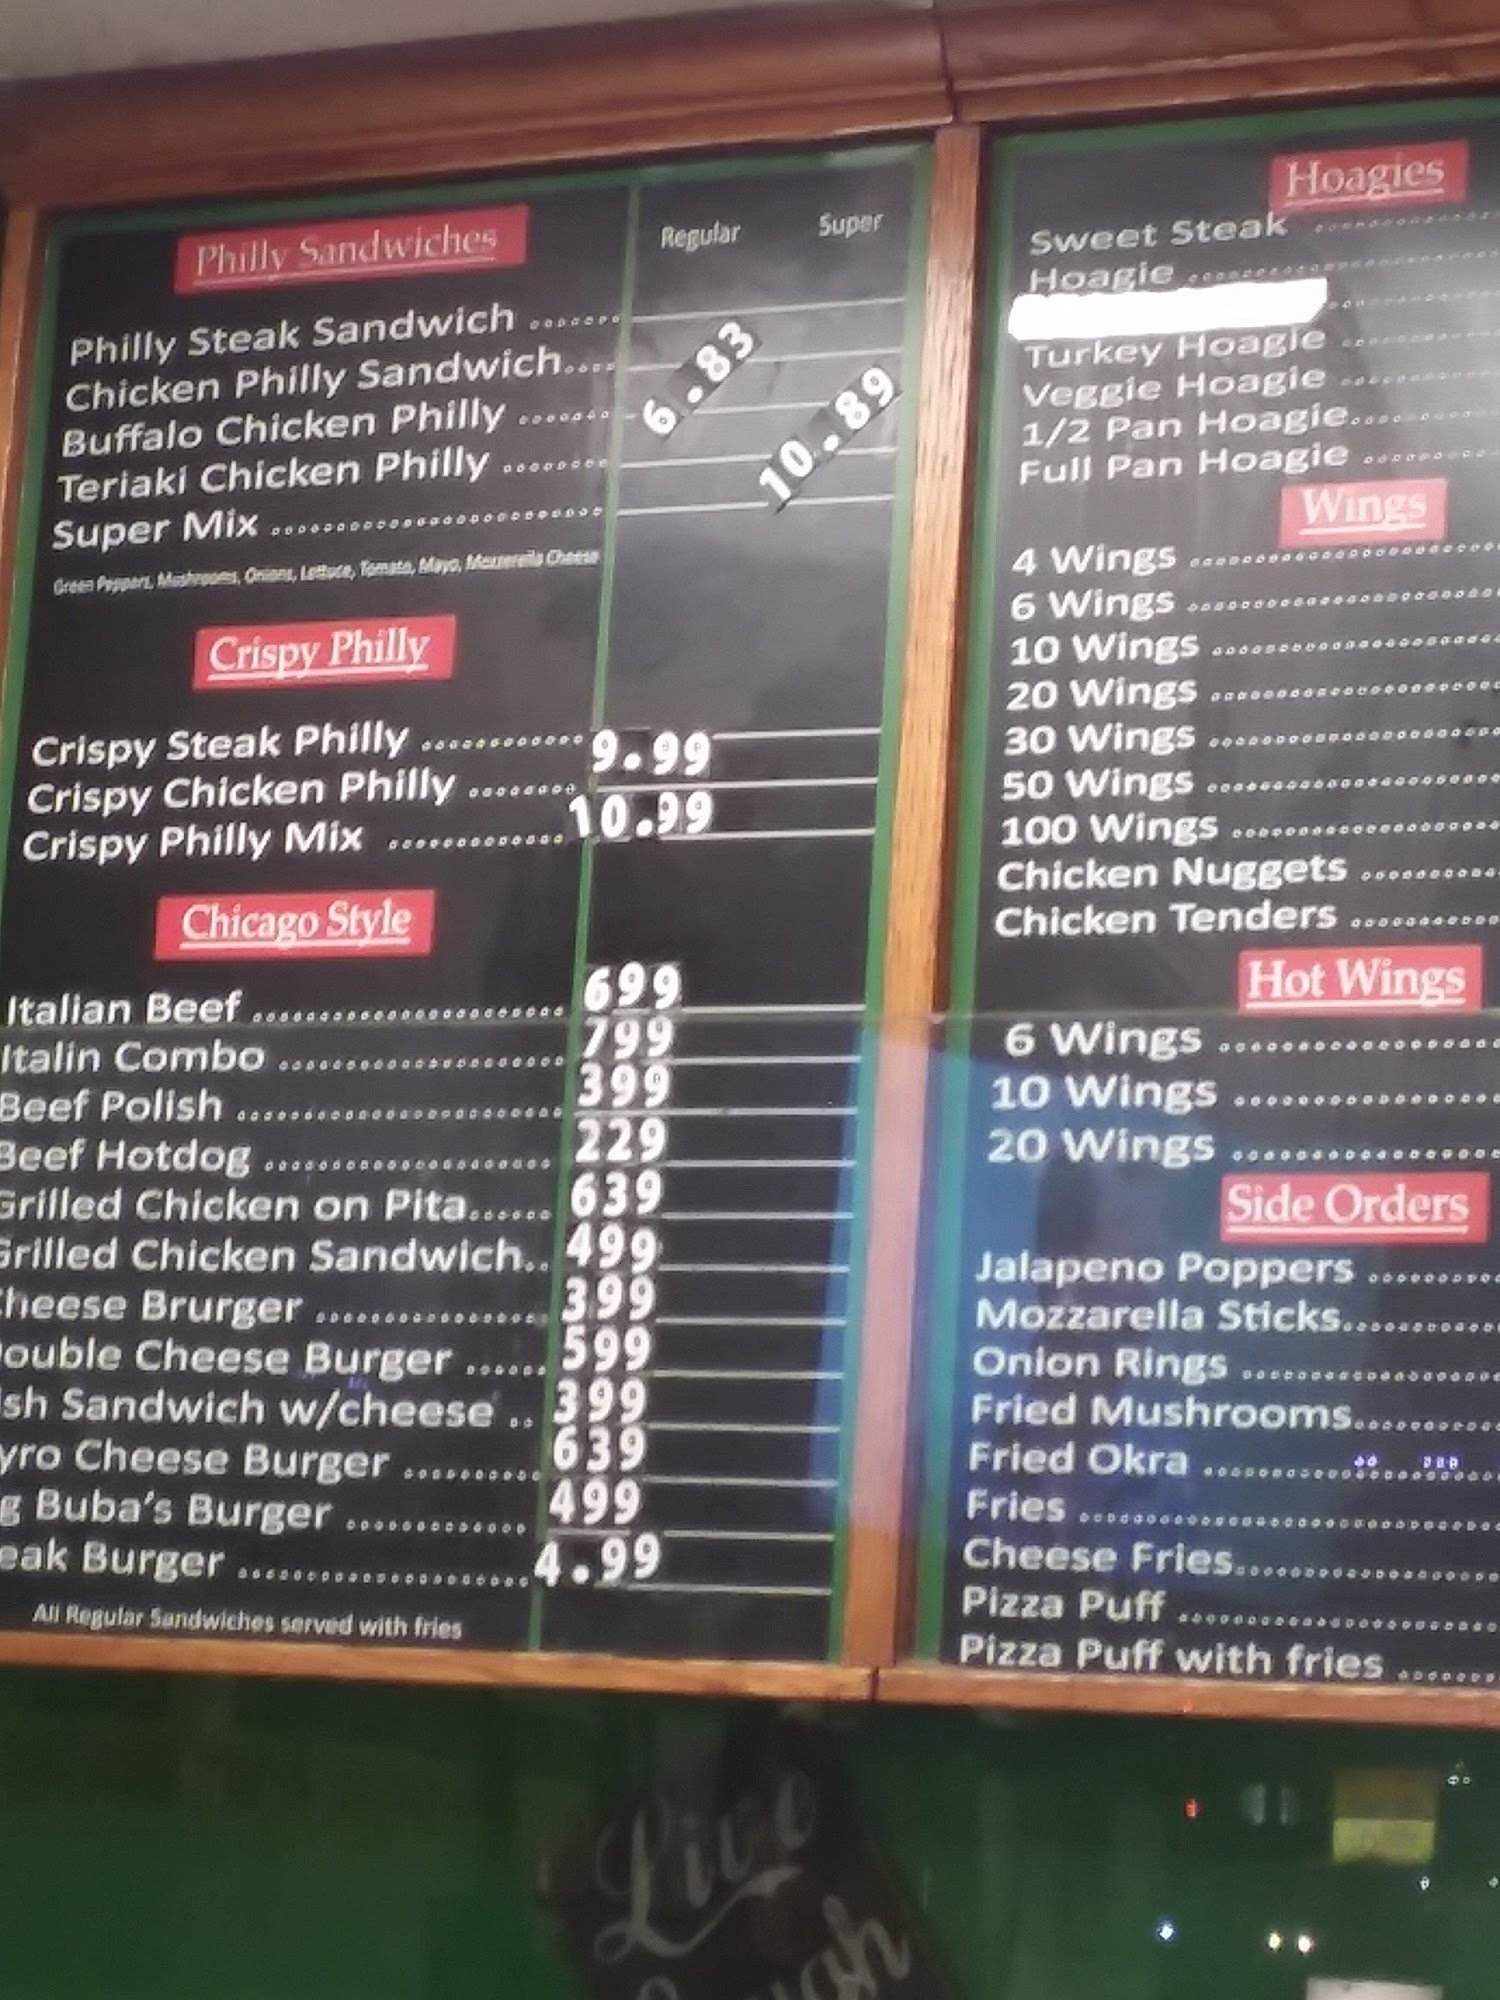 Philly Sandwiches
Regular Super
Philly Steak Sandwich .......
Chicken Philly Sandwich....
Buffalo Chicken Philly .......
Teriaki Chicken Philly ........
Super Mix .........................
6.83
10.89
Green Peppers, Mushrooms, Onions, Lettuce, Tomato, Mayo, Mozzerella Cheese
Crispy Philly
Crispy Steak Philly ............ 9.99
Crispy Chicken Philly ........
Crispy Philly Mix ............. 10.99
Chicago Style
Italian Beef ....................... 699
Italin Combo ..................... 799
Beef Polish ........................ 399
Beef Hotdog ...................... 229
Grilled Chicken on Pita...... 639
Grilled Chicken Sandwich.. 499
heese Brurger ................. 399
ouble Cheese Burger ...... 599
sh Sandwich w/cheese .. 399
yro Cheese Burger .......... 639
g Buba's Burger ............. 499
eak Burger ...................... 4.99
All Regular Sandwiches served with fries
Hoagies
Sweet Steak
Hoagie
Turkey Hoagie
Veggie Hoagie
1/2 Pan Hoagie
Full Pan Hoagie
Wings
4 Wings
6 Wings
10 Wings
20 Wings
30 Wings
50 Wings
100 Wings
Chicken Nuggets
Chicken Tenders
Hot Wings
6 Wings
10 Wings
20 Wings
Side Orders
Jalapeno Poppers
Mozzarella Sticks
Onion Rings
Fried Mushrooms
Fried Okra
Fries
Cheese Fries
Pizza Puff
Pizza Puff with fries
Live